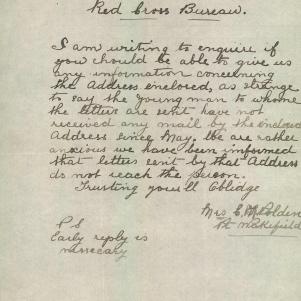 Red Cross Bureau.
I am writing to enquire if
you should be able to give us
any information concerning
the Address enclosed, as strange
to say the young man to whome
the letters are sent have not
received any mail by the enclosed
Address since May. We are rather
anxious we have been imformed
that letters sent by that Address
do not reach the person.
Trusting you'll Oblidge
Mrs E. M. Polden
Pt Wakefield
P S
Early reply is
nessecary